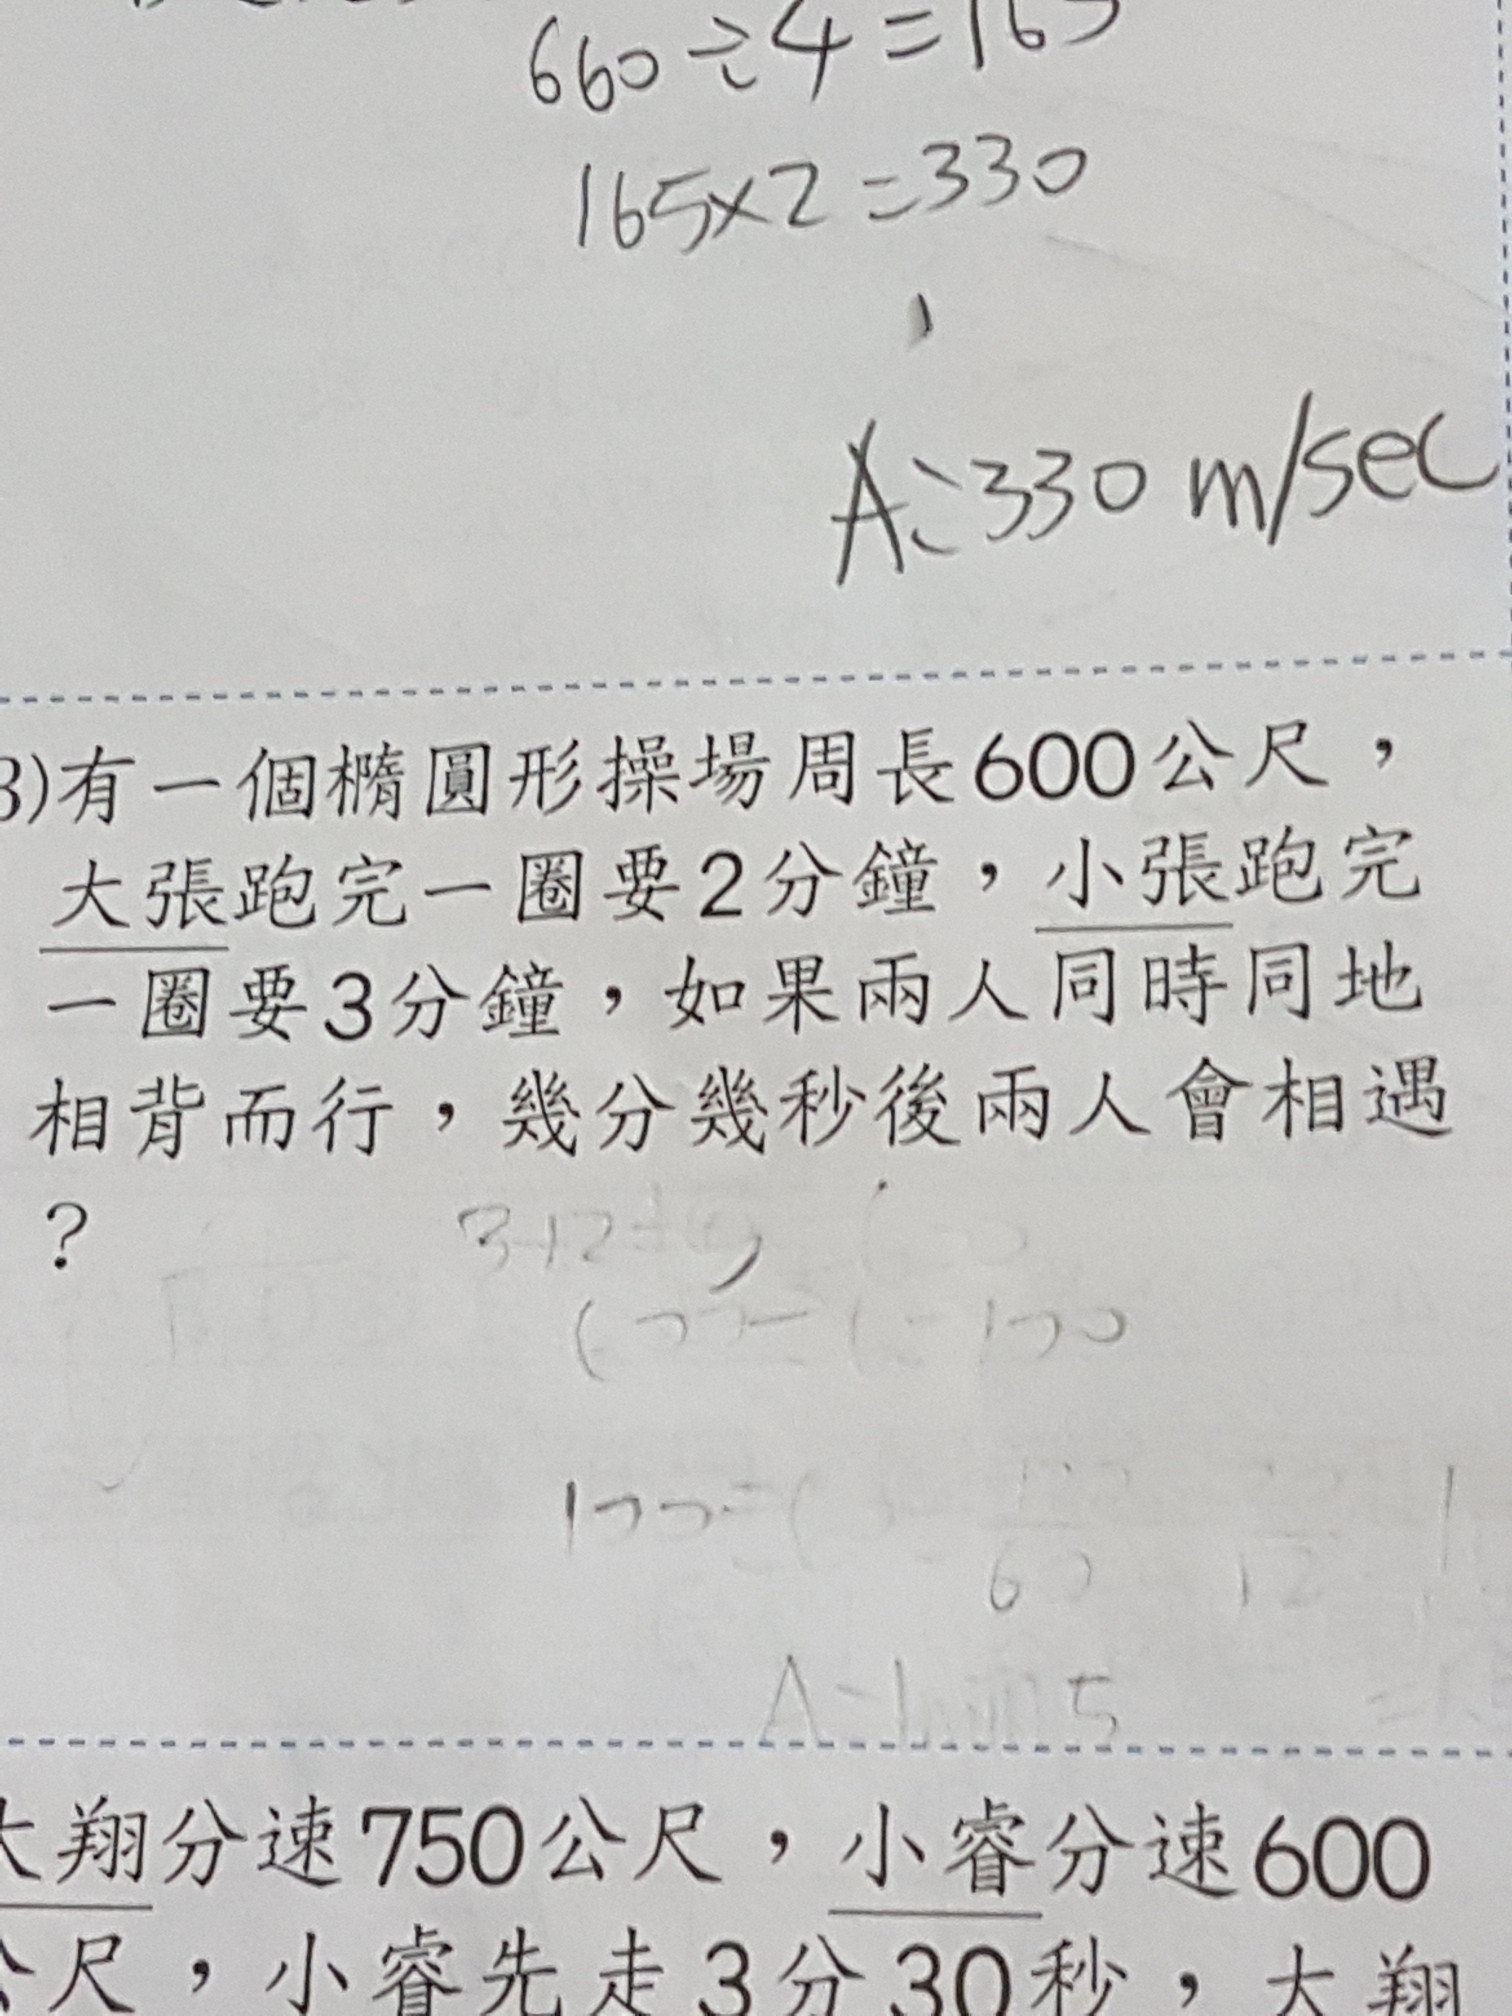 660÷4=165
165×2=330
A:330 m/sec
3)有一個橢圓形操場周長600公尺，
大張跑完一圈要2分鐘，小張跑完
一圈要3分鐘，如果兩人同時同地
相背而行，幾分幾秒後兩人會相遇
？
大翔分速750公尺，小睿分速600
公尺，小睿先走3分30秒，大翔